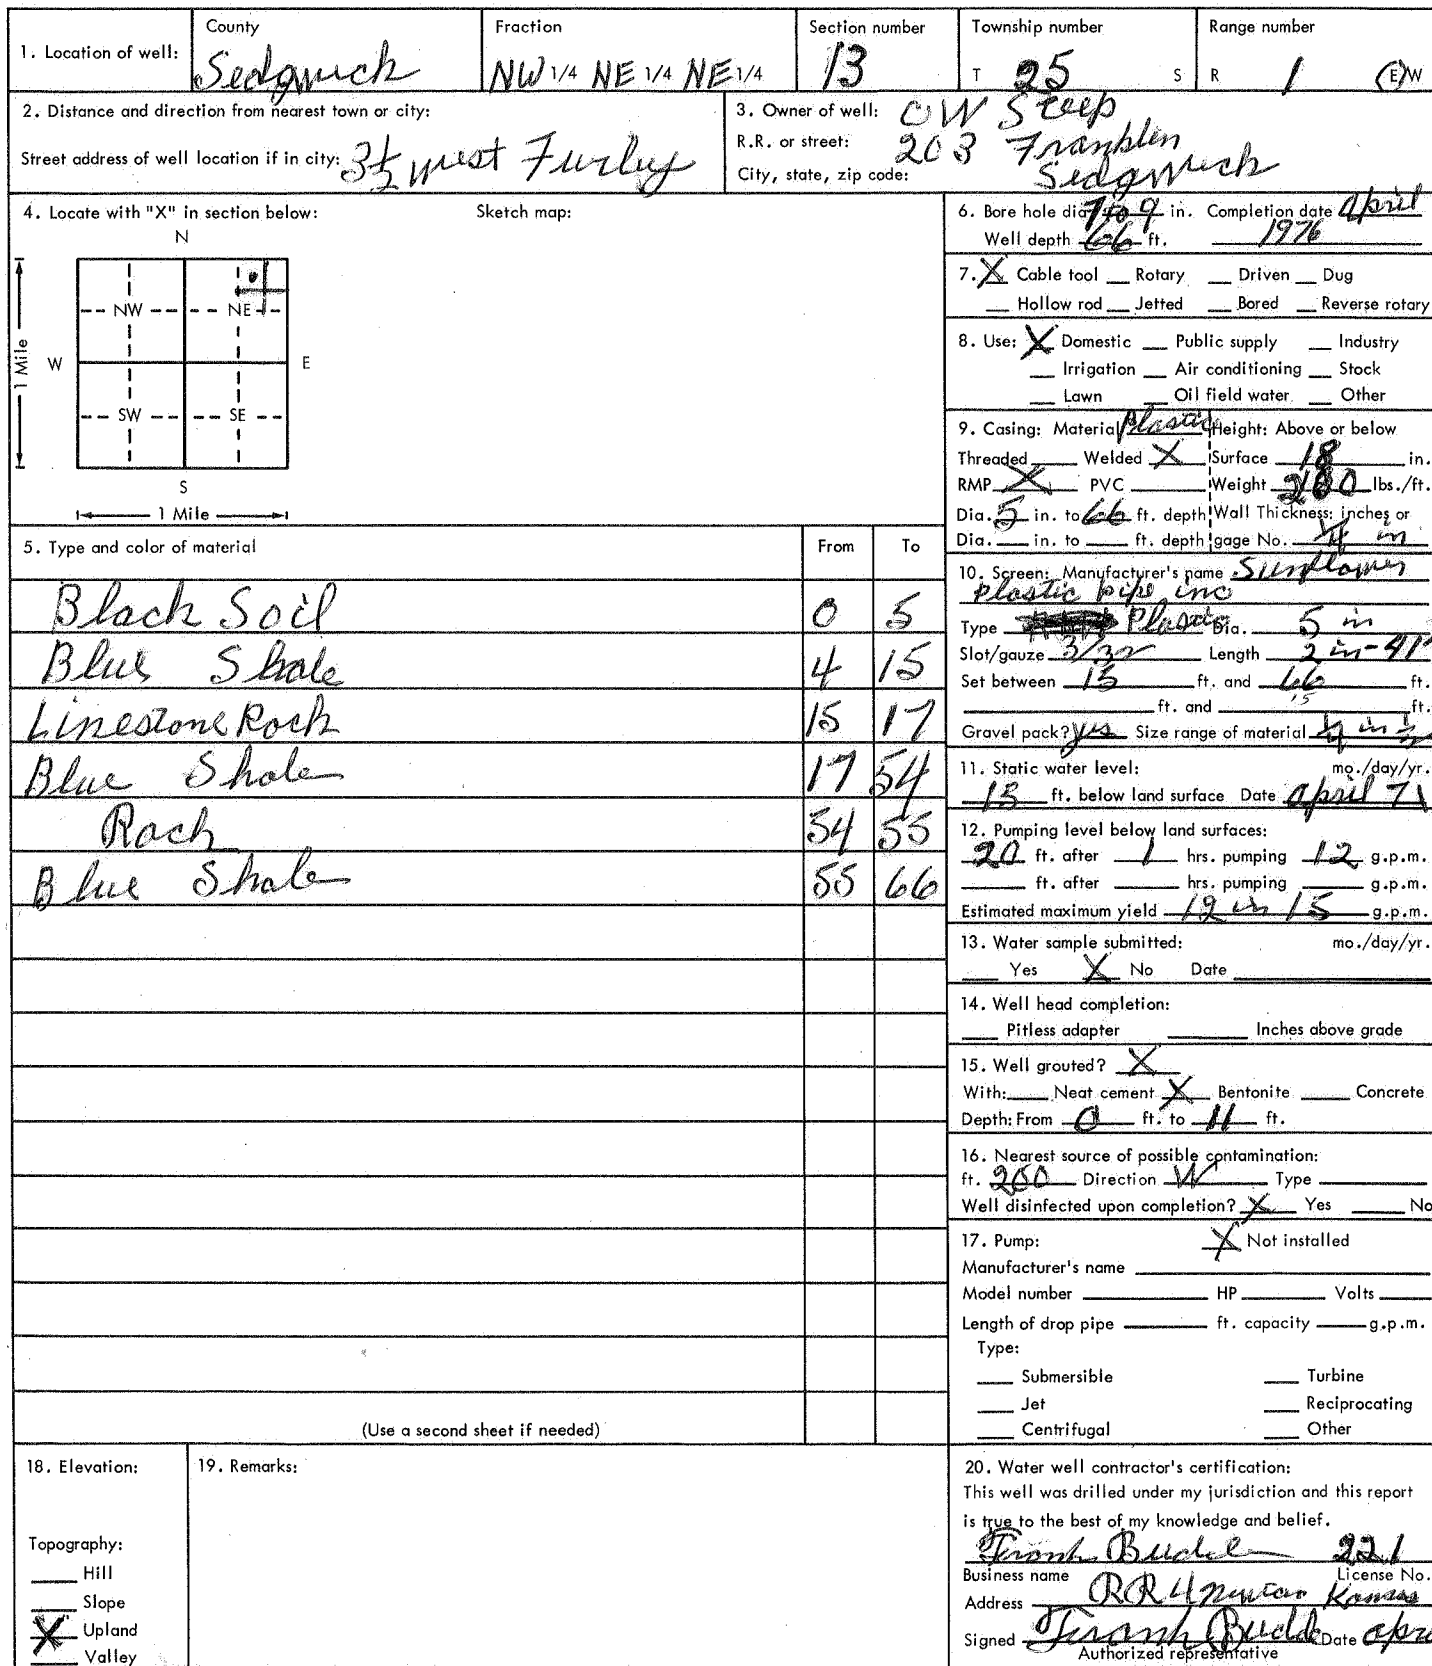 1. Location of well: County Sedgwick Fraction NW 1/4 NE 1/4 NE 1/4 Section number 13 Township number T 25 S Range number R 1 (E)/W
2. Distance and direction from nearest town or city:
Street address of well location if in city: 3½ west Furley
3. Owner of well: OW
R.R. or street: 203 Franklin
City, state, zip code: Sedgwick
4. Locate with "X" in section below: Sketch map:
N
NW NE
W E
SW SE
S
1 Mile
1 Mile
5. Type and color of material From To
Black Soil 0 5
Blue Shale 4 15
Linestone Rock 15 17
Blue Shale 17 54
Rock 54 55
Blue Shale 55 66
(Use a second sheet if needed)
6. Bore hole dia. 7 to 9 in. Completion date April
Well depth 66 ft. 1976
7. X Cable tool Rotary Driven Dug
Hollow rod Jetted Bored Reverse rotary
8. Use: X Domestic Public supply Industry
Irrigation Air conditioning Stock
Lawn Oil field water Other
9. Casing: Material Plastic Height: Above or below
Threaded Welded X Surface 18 in.
RMP X PVC Weight lbs./ft.
Dia. 5 in. to 66 ft. depth Wall Thickness: inches or
Dia. in. to ft. depth gage No. 1/4 in
10. Screen: Manufacturer's name Sunflower
plastic pipe inc
Type Plastic Dia. 5 in
Slot/gauze 3/32 Length 2 in-
Set between 15 ft. and 66 ft.
ft. and ft.
Gravel pack? yes Size range of material 1/4 in 1/2
11. Static water level: mo./day/yr.
15 ft. below land surface Date April
12. Pumping level below land surfaces:
20 ft. after 1 hrs. pumping 12 g.p.m.
ft. after hrs. pumping g.p.m.
Estimated maximum yield 12 in 15 g.p.m.
13. Water sample submitted: mo./day/yr.
Yes X No Date
14. Well head completion:
Pitless adapter Inches above grade
15. Well grouted? X
With: Neat cement X Bentonite Concrete
Depth: From 0 ft. to 11 ft.
16. Nearest source of possible contamination:
ft. 200 Direction W Type
Well disinfected upon completion? X Yes No
17. Pump: X Not installed
Manufacturer's name
Model number HP Volts
Length of drop pipe ft. capacity g.p.m.
Type:
Submersible Turbine
Jet Reciprocating
Centrifugal Other
18. Elevation:
Topography:
Hill
Slope
X Upland
Valley
19. Remarks:
20. Water well contractor's certification:
This well was drilled under my jurisdiction and this report
is true to the best of my knowledge and belief.
Frank 221
Business name License No.
Address RR 4 Newton Kansas
Signed Frank Date
Authorized representative